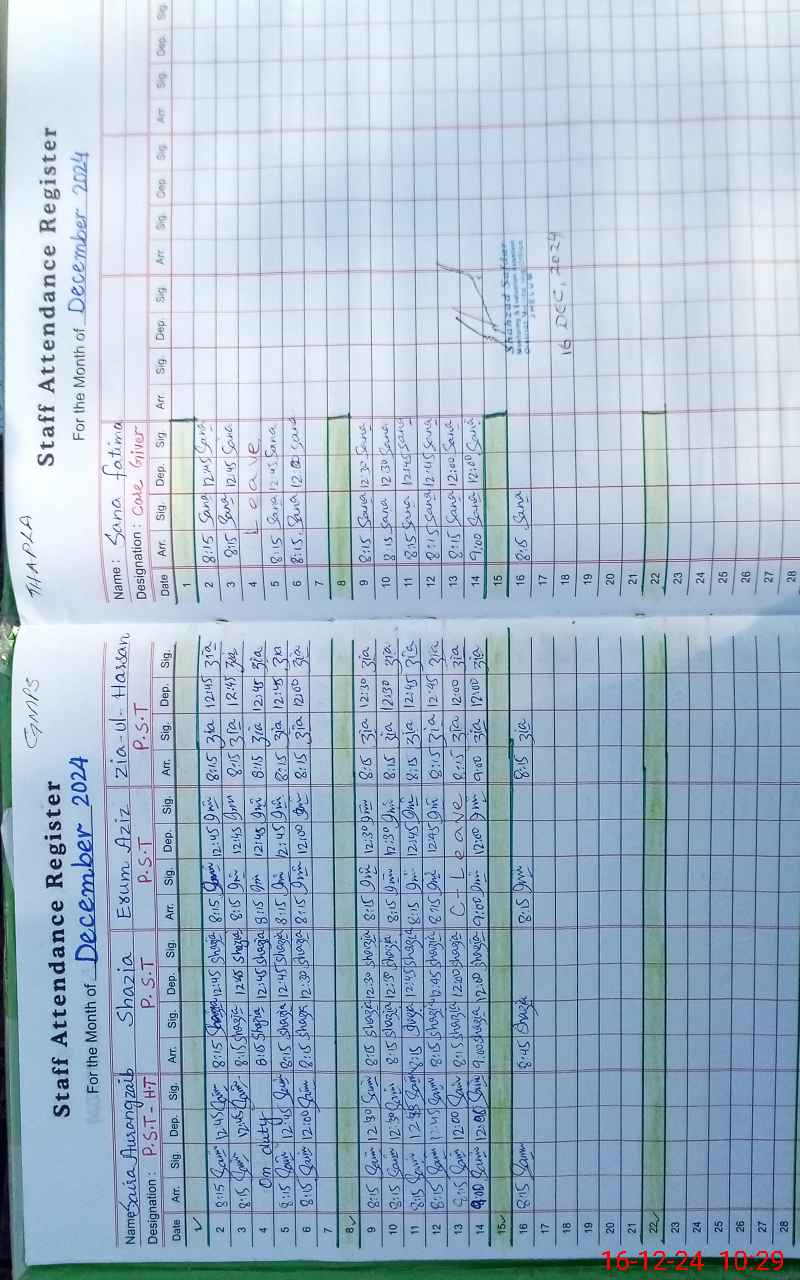 GMPS
Staff Attendance Register
For the Month of December 2024
Name Saira Aurangzaib Shazia Erum Aziz Zia-ul-Hassan
Designation: P.S.T-HT P.S.T P.S.T P.S.T
Date Arr. Sig. Dep. Sig. Arr. Sig. Dep. Sig. Arr. Sig. Dep. Sig. Arr. Sig. Dep. Sig.
1
2 8:15 Saim 12:45 Saim 8:15 Shazia 12:45 Shazia 8:15 12:45 8:15 Zia 12:45 Zia
3 8:15 Saim 12:45 Saim 8:15 Shazia 12:45 Shazia 8:15 12:45 8:15 Zia 12:45 Zia
4 On duty 8:15 Shazia 12:45 Shazia 8:15 12:45 8:15 Zia 12:45 Zia
5 8:15 Saim 12:45 Saim 8:15 Shazia 12:45 Shazia 8:15 12:45 8:15 Zia 12:45 Zia
6 8:15 Saim 12:00 Saim 8:15 Shazia 12:30 Shazia 8:15 12:00 8:15 Zia 12:00 Zia
7
8
9 8:15 Saim 12:30 Saim 8:15 Shazia 12:30 Shazia 8:15 12:30 8:15 Zia 12:30 Zia
10 8:15 Saim 12:30 Saim 8:15 Shazia 12:30 Shazia 8:15 12:30 8:15 Zia 12:30 Zia
11 8:15 Saim 12:45 Saim 8:15 Shazia 12:45 Shazia 8:15 12:45 8:15 Zia 12:45 Zia
12 8:15 Saim 12:45 Saim 8:15 Shazia 12:45 Shazia 8:15 12:45 8:15 Zia 12:45 Zia
13 8:15 Saim 12:00 Saim 8:15 Shazia 12:00 Shazia C-Leave 8:15 Zia 12:00 Zia
14 9:00 Saim 12:00 Saim 9:00 Shazia 12:00 Shazia 9:00 12:00 9:00 Zia 12:00 Zia
15
16 8:15 Saim 8:45 Shazia 8:15 8:15 Zia
17
18
19
20
21
22
23
24
25
26
27
28
THAPLA
Staff Attendance Register
For the Month of December 2024
Name: Sana fatima
Designation: Care Giver
Date Arr. Sig. Dep. Sig. Arr. Sig. Dep. Sig. Arr. Sig. Dep. Sig. Arr. Sig. Dep. Sig.
1
2 8:15 Sana 12:45 Sana
3 8:15 Sana 12:45 Sana
4 Leave
5 8:15 Sana 12:45 Sana
6 8:15 Sana 12:00 Sana
7
8
9 8:15 Sana 12:30 Sana
10 8:15 Sana 12:30 Sana
11 8:15 Sana 12:45 Sana
12 8:15 Sana 12:45 Sana
13 8:15 Sana 12:00 Sana
14 9:00 Sana 12:00 Sana
15
16 8:15 Sana
17
18
19
20
21
22
23
24
25
26
27
28
Shahzad Safdar
JHELUM
16 DEC, 2024
16-12-24 10:29